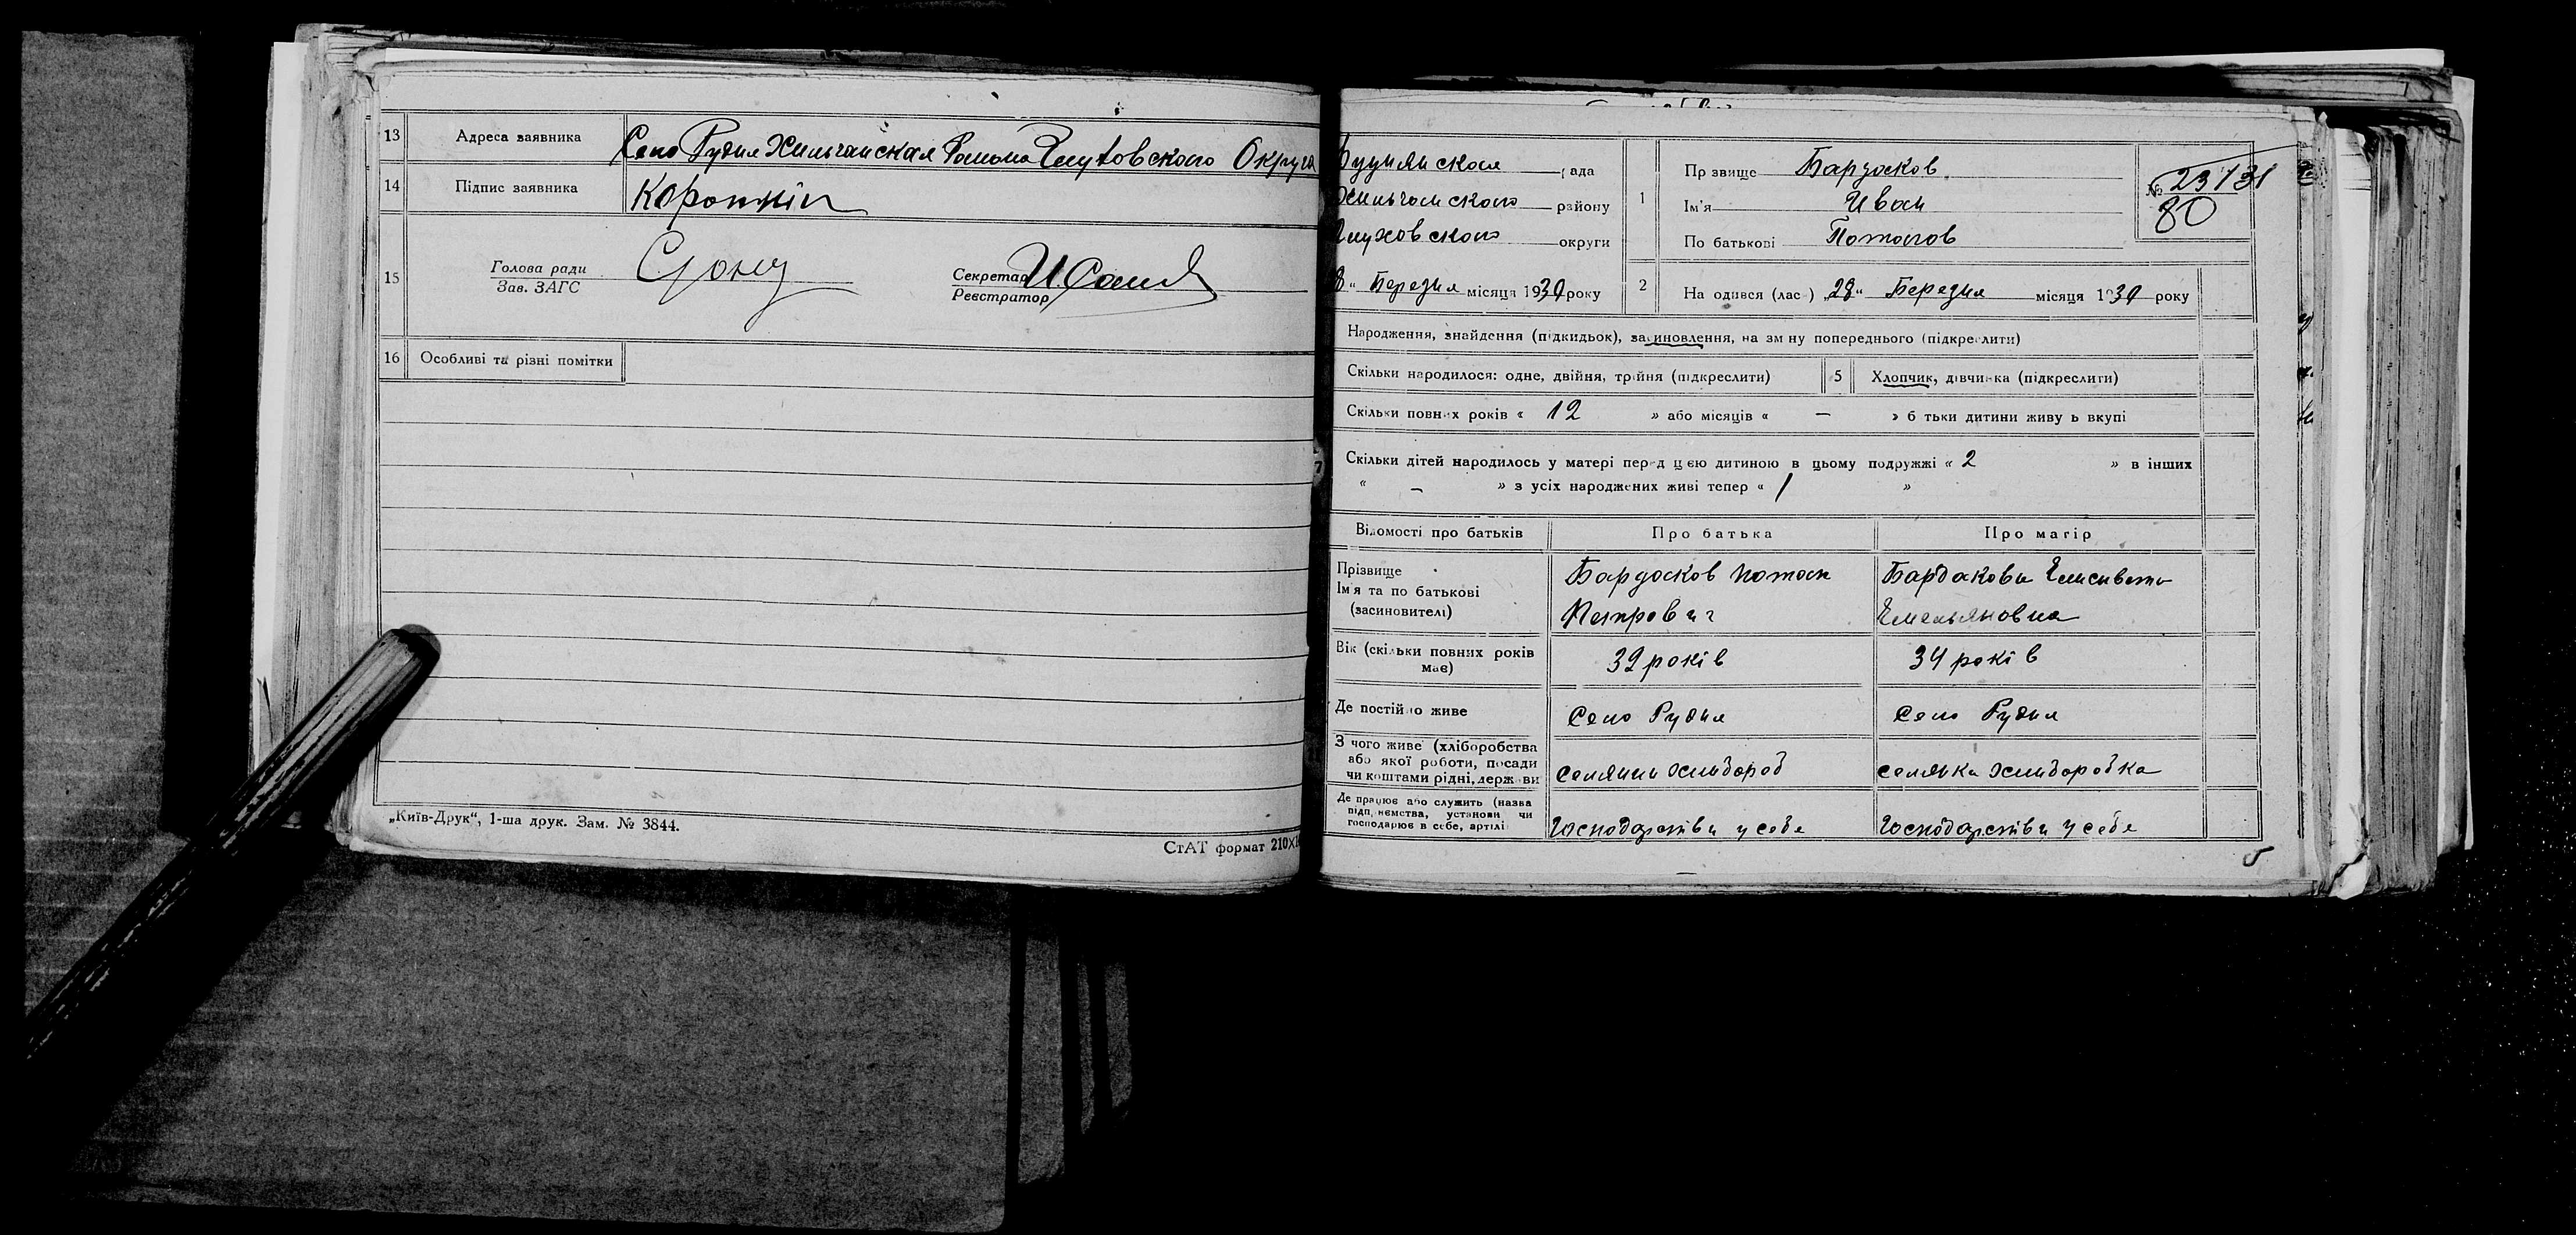 13 Адреса заявника Село Рудня Хильчанская Района Глуховского Округа
14 Підпис заявника
15 Голова ради
Зав. ЗАГС
Секретар
Реєстратор
16 Особливі та різні помітки
„Київ-Друк“, 1-ша друк. Зам. № 3844.
СтАТ формат 210×
рада
району
Глуховского округи
8 „ Березня місяця 1930 року
1 Пр звище Бардаков
Ім'я Иван
По батькові Потапов
№ 23/31
80
2 На одився (лас ) „28“ Березня місяця 1930 року
Народження, знайдення (підкидьок), засиновлення, на зм ну попереднього (підкреслити)
Скільки народилося: одне, двійня, трійня (підкреслити) 5 Хлопчик, дівчинка (підкреслити)
Скільки повних років « 12 » або місяців « — » б тьки дитини живу ь вкупі
Скільки дітей народилось у матері перед цією дитиною в цьому подружжі « 2 » в інших
« — » з усіх народжених живі тепер « 1 »
Відомості про батьків Про батька Про матір
Прізвище
Ім'я та по батькові
(засиновителі)
Бардаков Потап
Петрович
Бардакова Елисивета
Емельяновна
Вік (скільки повних років
має)
39 років 34 років
Де постійно живе Село Рудня Село Рудня
З чого живе (хліборобства
або якої роботи, посади
чи коштами рідні, держави
селянин хлибороб селянка хлиборобка
Де працює або служить (назва
підприємства, установи чи
господарює в себе, артілі
господарстви у себе господарстви у себе